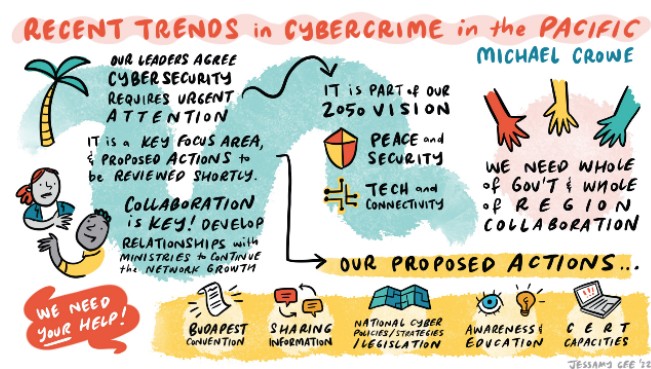 RECENT TRENDS in CYBERCRIME in the PACIFIC
MICHAEL CROWE
OUR LEADERS AGREE
CYBERSECURITY
REQUIRES URGENT
ATTENTION
IT is a KEY FOCUS AREA,
& PROPOSED ACTIONS to
be REVIEWED SHORTLY.
COLLABORATION
is KEY! DEVELOP
RELATIONSHIPS with
MINISTRIES to CONTINUE
the NETWORK GROWTH
IT is PART of OUR
2050 VISION
PEACE and
SECURITY
TECH and
CONNECTIVITY
WE NEED WHOLE
of GOV'T & WHOLE
of REGION
COLLABORATION
OUR PROPOSED ACTIONS...
WE NEED
YOUR HELP!
BUDAPEST
CONVENTION
SHARING
INFORMATION
NATIONAL CYBER
POLICIES/STRATEGIES
/LEGISLATION
AWARENESS &
EDUCATION
CERT
CAPACITIES
JESSAMY GEE '22